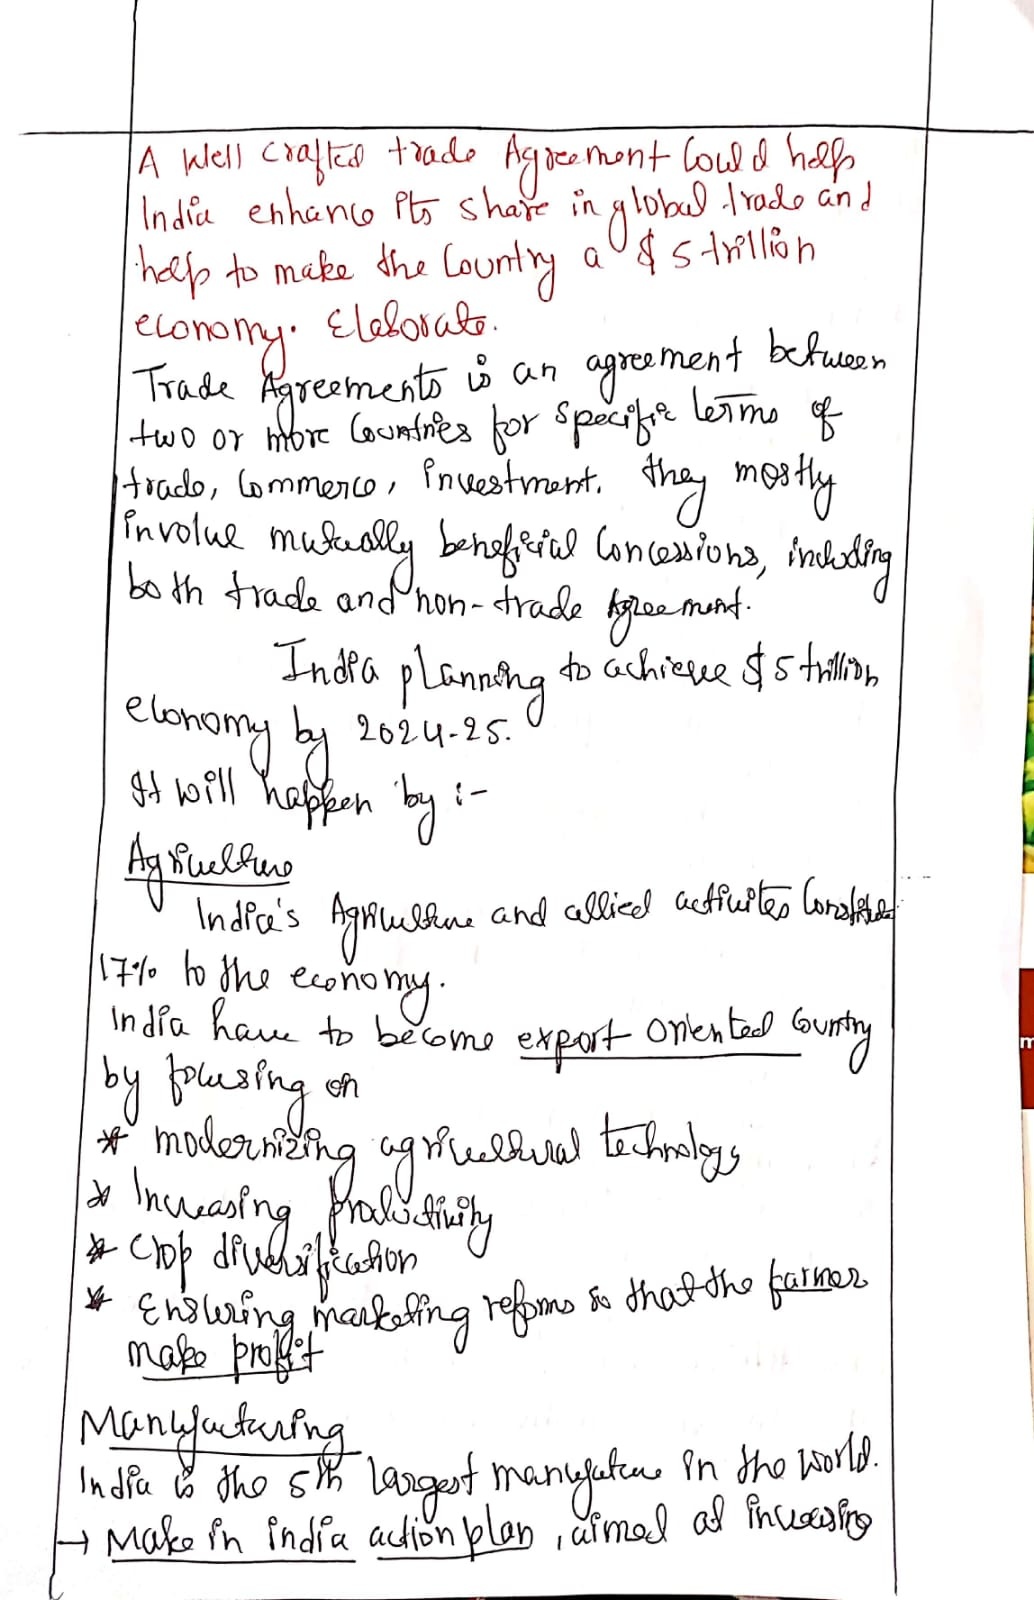 A Well crafted trade Agreement Could help
India enhance its share in global trade and
help to make the Country a $ 5 trillion
economy. Elaborate.
Trade Agreements is an agreement between
two or more Countries for specific terms of
trade, Commerce, investment. they mostly
involve mutually beneficial Concessions, including
both trade and non-trade Agreement.
India planning to achieve $ 5 trillion
economy by 2024-25.
It will happen by :-
Agriculture
India's Agriculture and allied activites Constitutes
17% to the economy.
India have to become export oriented Country
by focusing on
* modernizing agricultural technology
* Increasing productivity
* Crop diversification
* Ensuring marketing reforms so that the farmer
make profit
Manufacturing
India is the 5th largest manufacture in the world.
→ Make in india action plan, aimed at increasing